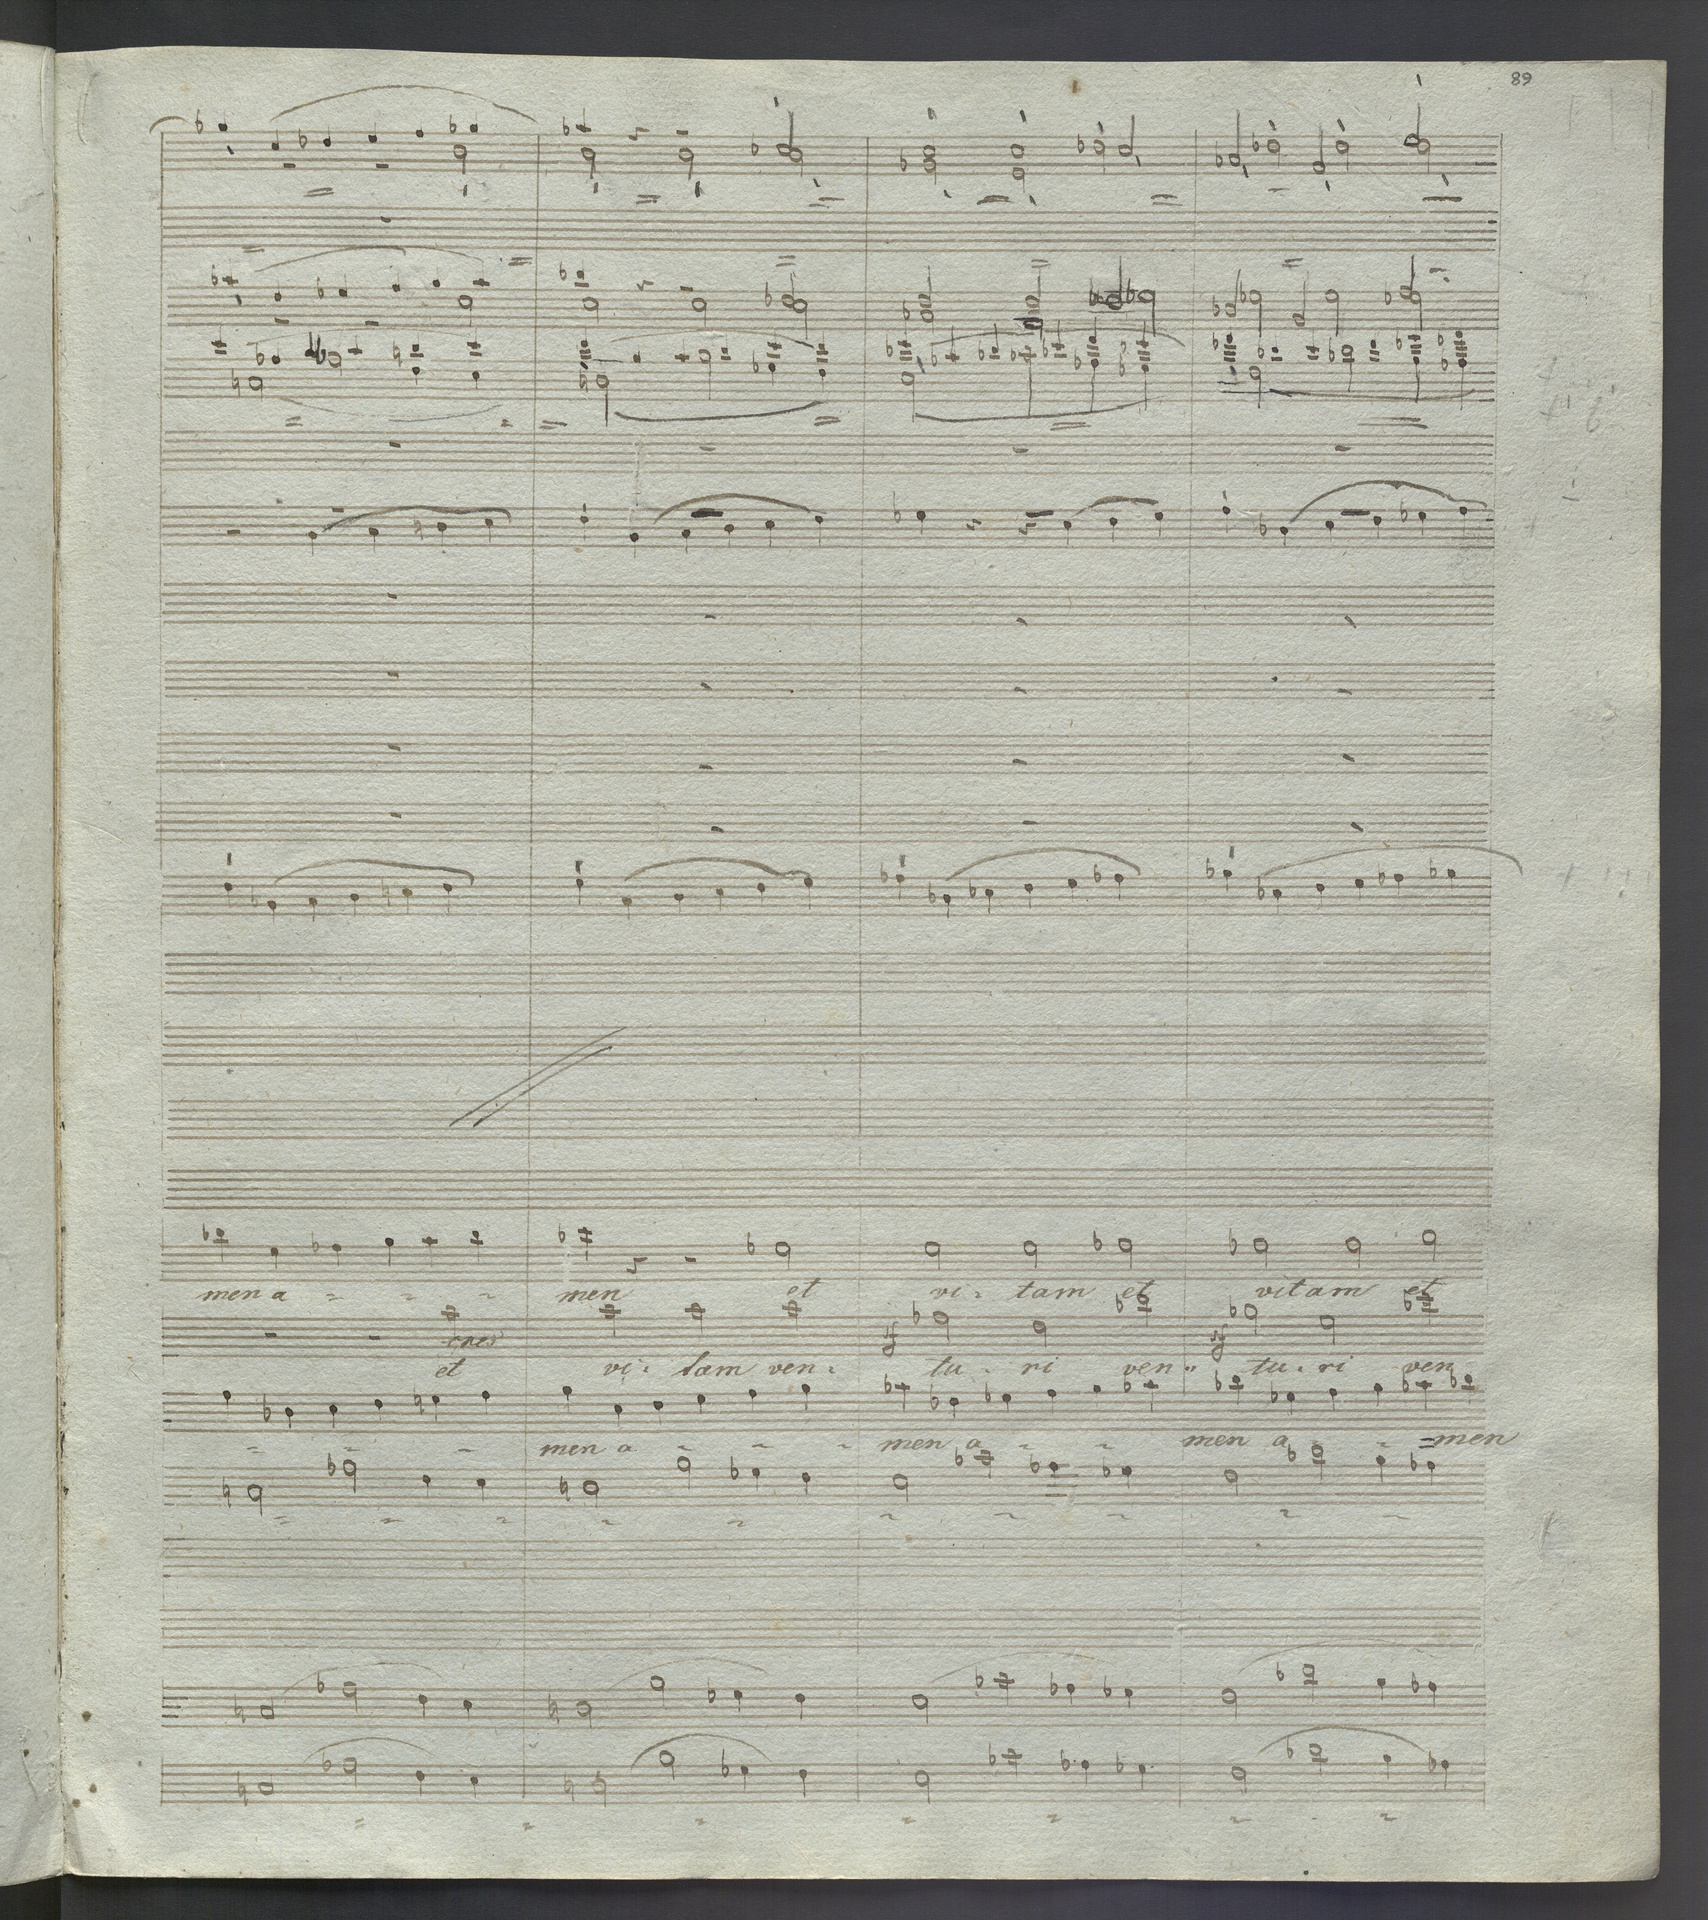 89
men a = = = men et vi = tam et vitam et
cres sf sf
et vi = tam ven = tu = ri ven = tu = ri ven
= = = men a = = = men a = = men a = = men